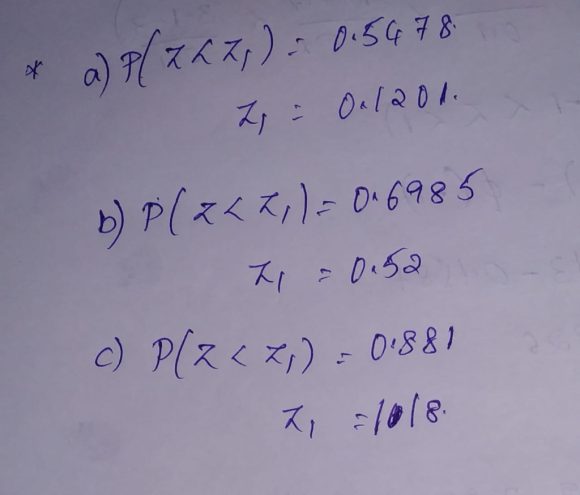 * a) P(z < z₁) = 0.5478.
z₁ = 0.1201.
b) P(z < z₁) = 0.6985
z₁ = 0.52
c) P(z < z₁) = 0.881
z₁ = 1.18.